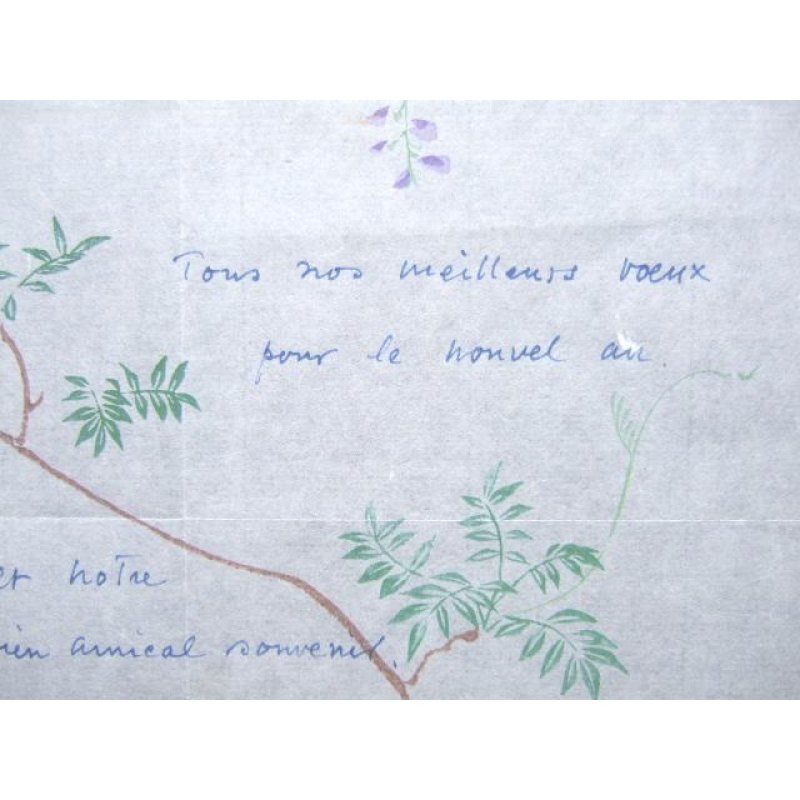 Tous nos meilleurs vœux
pour le nouvel an.
et notre
ien amical souvenir.